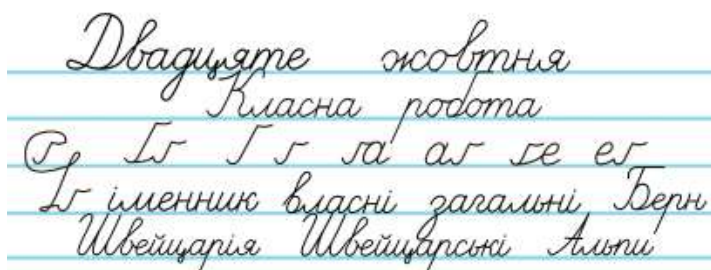 Двадцяте жовтня
Класна робота
г Гг Г г га аг ге ег
Гг іменник власні загальні Берн
Швейцарія Швейцарські Альпи